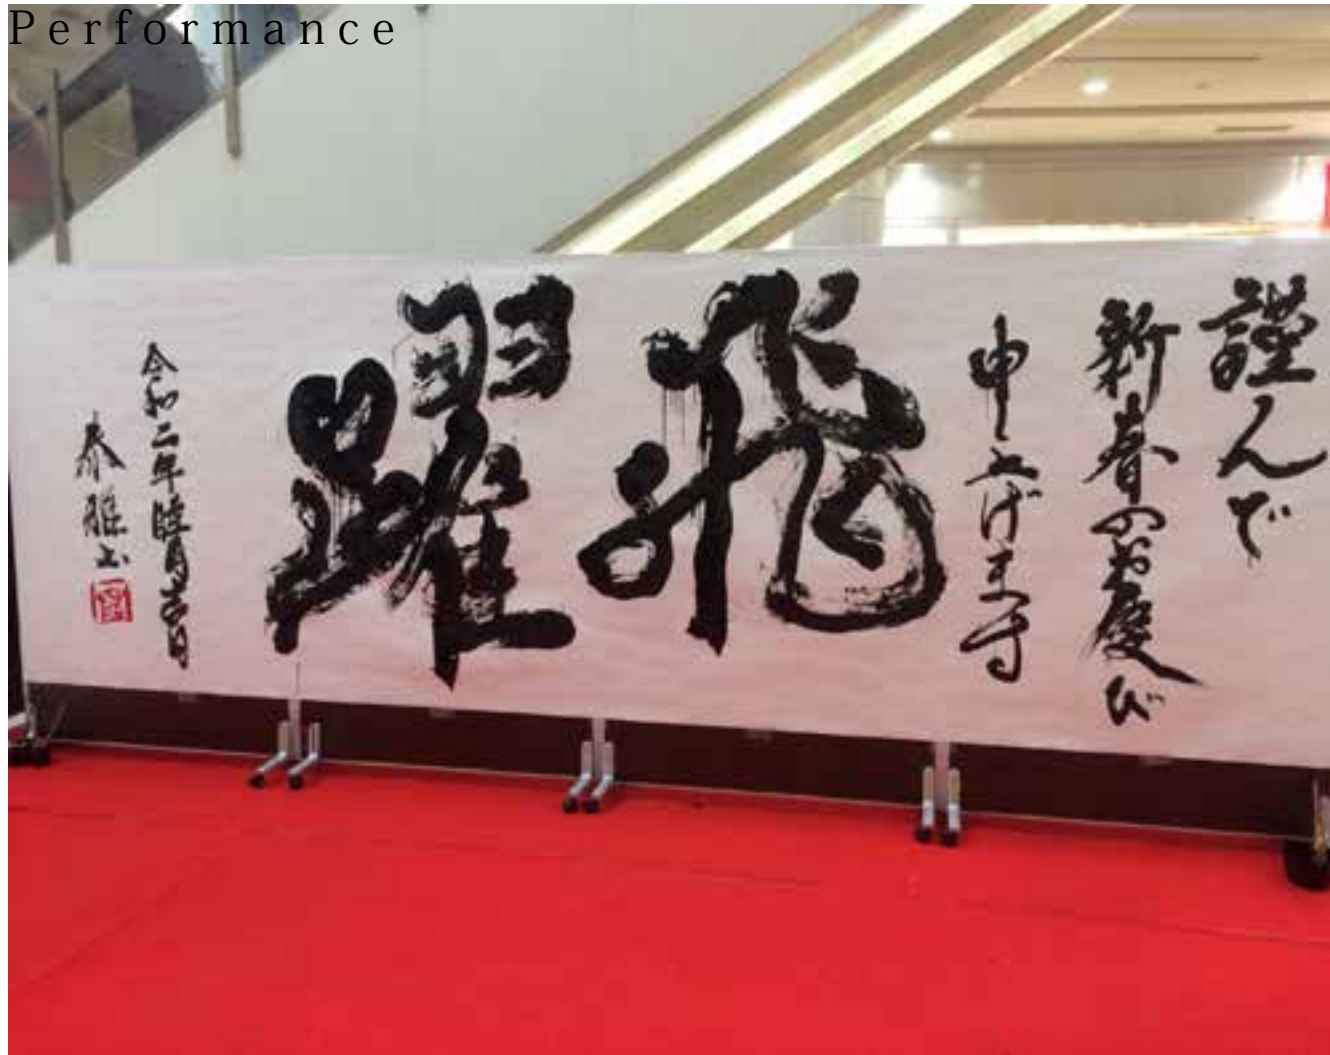 Performance
謹んで
新春のお慶び
申し上げます
飛躍
令和二年睦月吉日
泰雅書